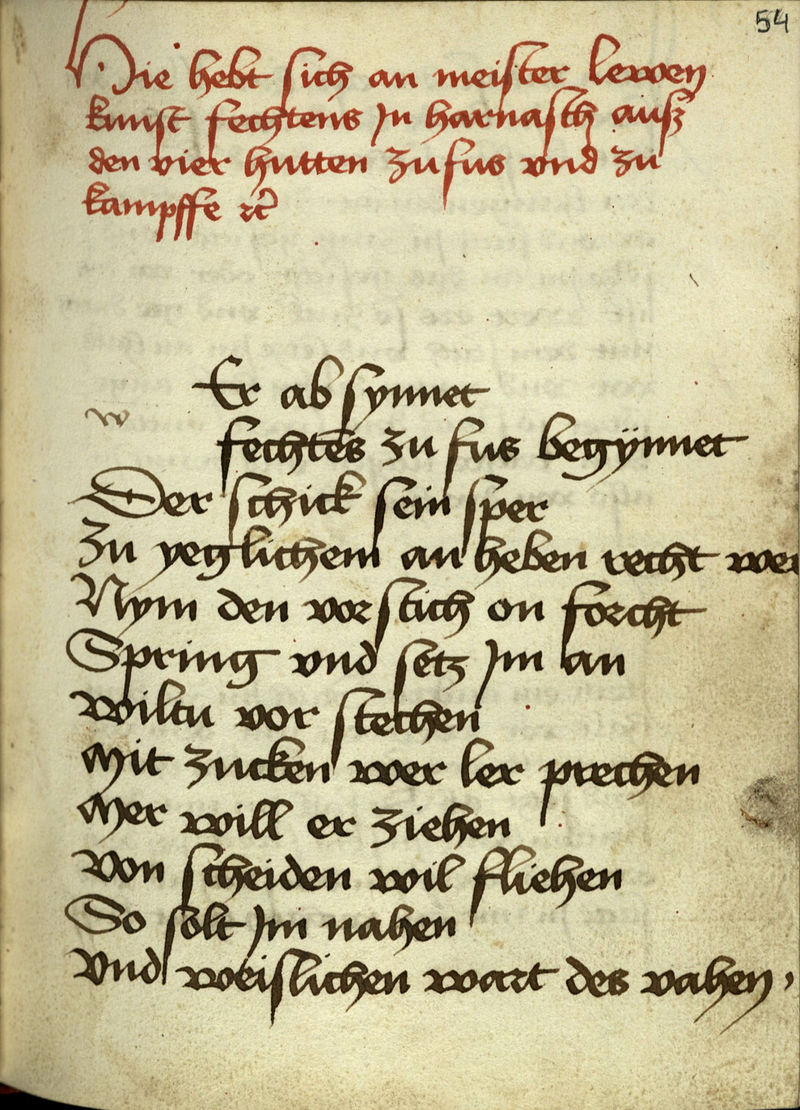 54
Hie hebt sich an meister lewen
kunst fechtens In harnasch ausz
den vier hutten zu fus vnd zu
kampffe rc̃
Er ab synnet
w
fechtēs zu fus begÿnnet
Der schick sein sper
zu yeglichem an heben recht wer
Nym den vor stich on forcht
Spring vnd setz Im an
wiltu vor stechen
Mit zucken wer ler prechen
Mer will er ziehen
von scheiden wil fliehen
So solt Im nahen
vnd weislichen wart des vahen,